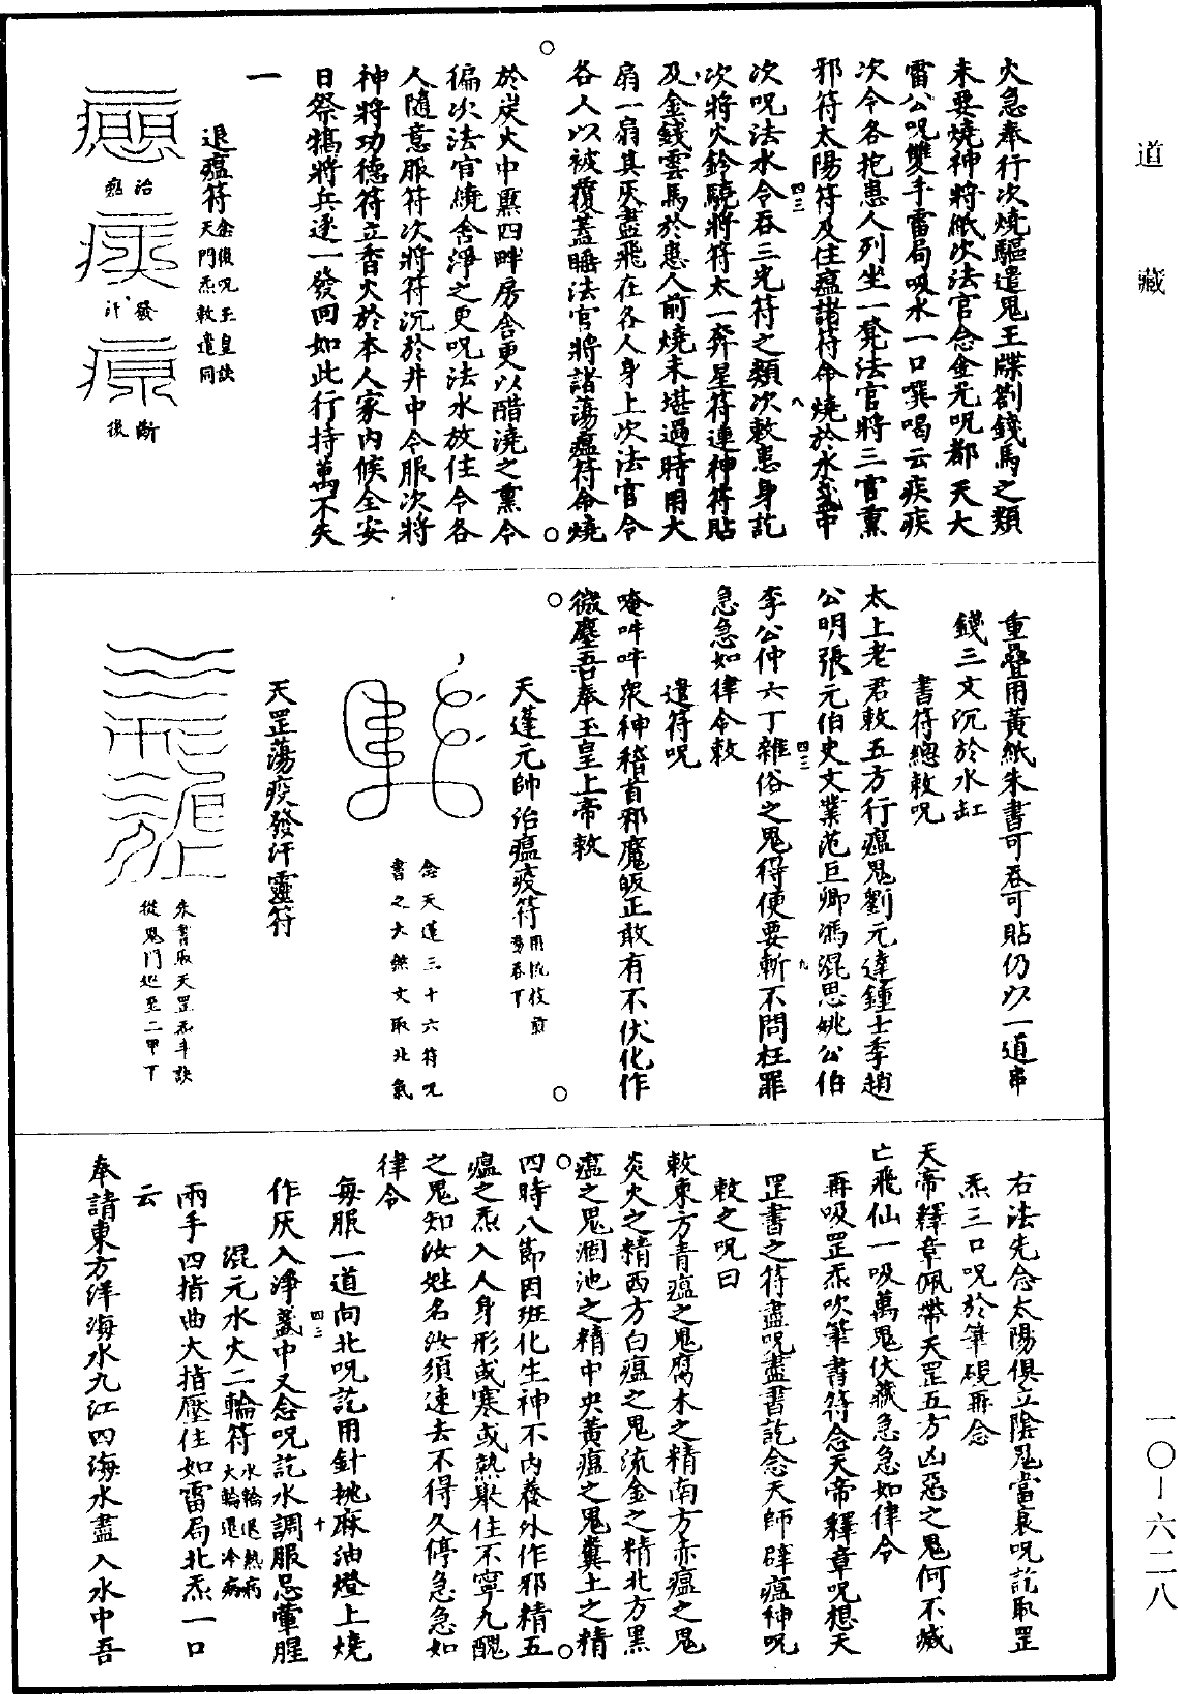 道藏
火急奉行次燒驅遣鬼王牒劄錢馬之類
未要燒神將紙次法官念金光呪都天大
雷公呪雙手雷局吸水一口噀喝云疾疾
次令各抱患人列坐一凳法官將三官熏
邪符太陽符及住瘟諸符命燒於水盞中
次呪法水令吞三光符之類次敕患身訖
次將火鈴驍將符太一奔星符連神符貼
及金錢雲馬於患人前燒未堪過時用大
扇一扇其灰盡飛在各人身上次法官令
各人以被覆蓋睡法官將諸蕩瘟符命燒
於炭火中熏四畔房舍更以醋澆之熏令
徧次法官繞舍淨之更呪法水放住令各
人隨意服符次將符沉於井中令服次將
神將功德符立香火於本人家內候全安
日祭犒將兵遂一發回如此行持萬不失
一
退瘟符念後呪玉皇訣
天門炁敕遣同
治
發汗
斷後
重疊用黃紙朱書可吞可貼仍以一道串
錢三文沉於水缸
書符總敕呪
太上老君敕五方行瘟鬼劉元達鍾士季趙
公明張元伯史文業范巨卿馮混思姚公伯
李公仲六丁雜俗之鬼得便要斬不問枉罪
急急如律令敕
遣符呪
唵吽吽眾神稽首邪魔皈正敢有不伏化作
微塵吾奉玉皇上帝敕
天蓬元帥治瘟疫符
念天蓬三十六符呪
書之大然文取北炁
天罡蕩疫發汗靈符
朱書取天罡炁斗訣
從鬼門起至二甲下
右法先念太陽俱立陰鬼當衰呪訖取罡
炁三口呪於筆硯再念
天帝釋章佩帶天罡五方凶惡之鬼何不滅
亡飛仙一吸萬鬼伏藏急急如律令
再吸罡炁吹筆書符念天帝釋章呪想天
罡書之符盡呪盡書訖念天師辟瘟神呪
敕之呪曰
敕東方青瘟之鬼腐木之精南方赤瘟之鬼
炎火之精西方白瘟之鬼流金之精北方黑
瘟之鬼涸池之精中央黃瘟之鬼糞土之精
四時八節因班化生神不內養外作邪精五
瘟之炁入人身形或寒或熱聚住不寧九醜
之鬼知汝姓名汝須速去不得久停急急如
律令
每服一道向北呪訖用針挑麻油燈上燒
作灰入淨盞中又念呪訖水調服忌葷腥
混元水火二輪符水輪退熱病
火輪退冷病
兩手四指曲大指壓住如雷局北炁一口
云
奉請東方洋海水九江四海水盡入水中吾
一〇—六二八